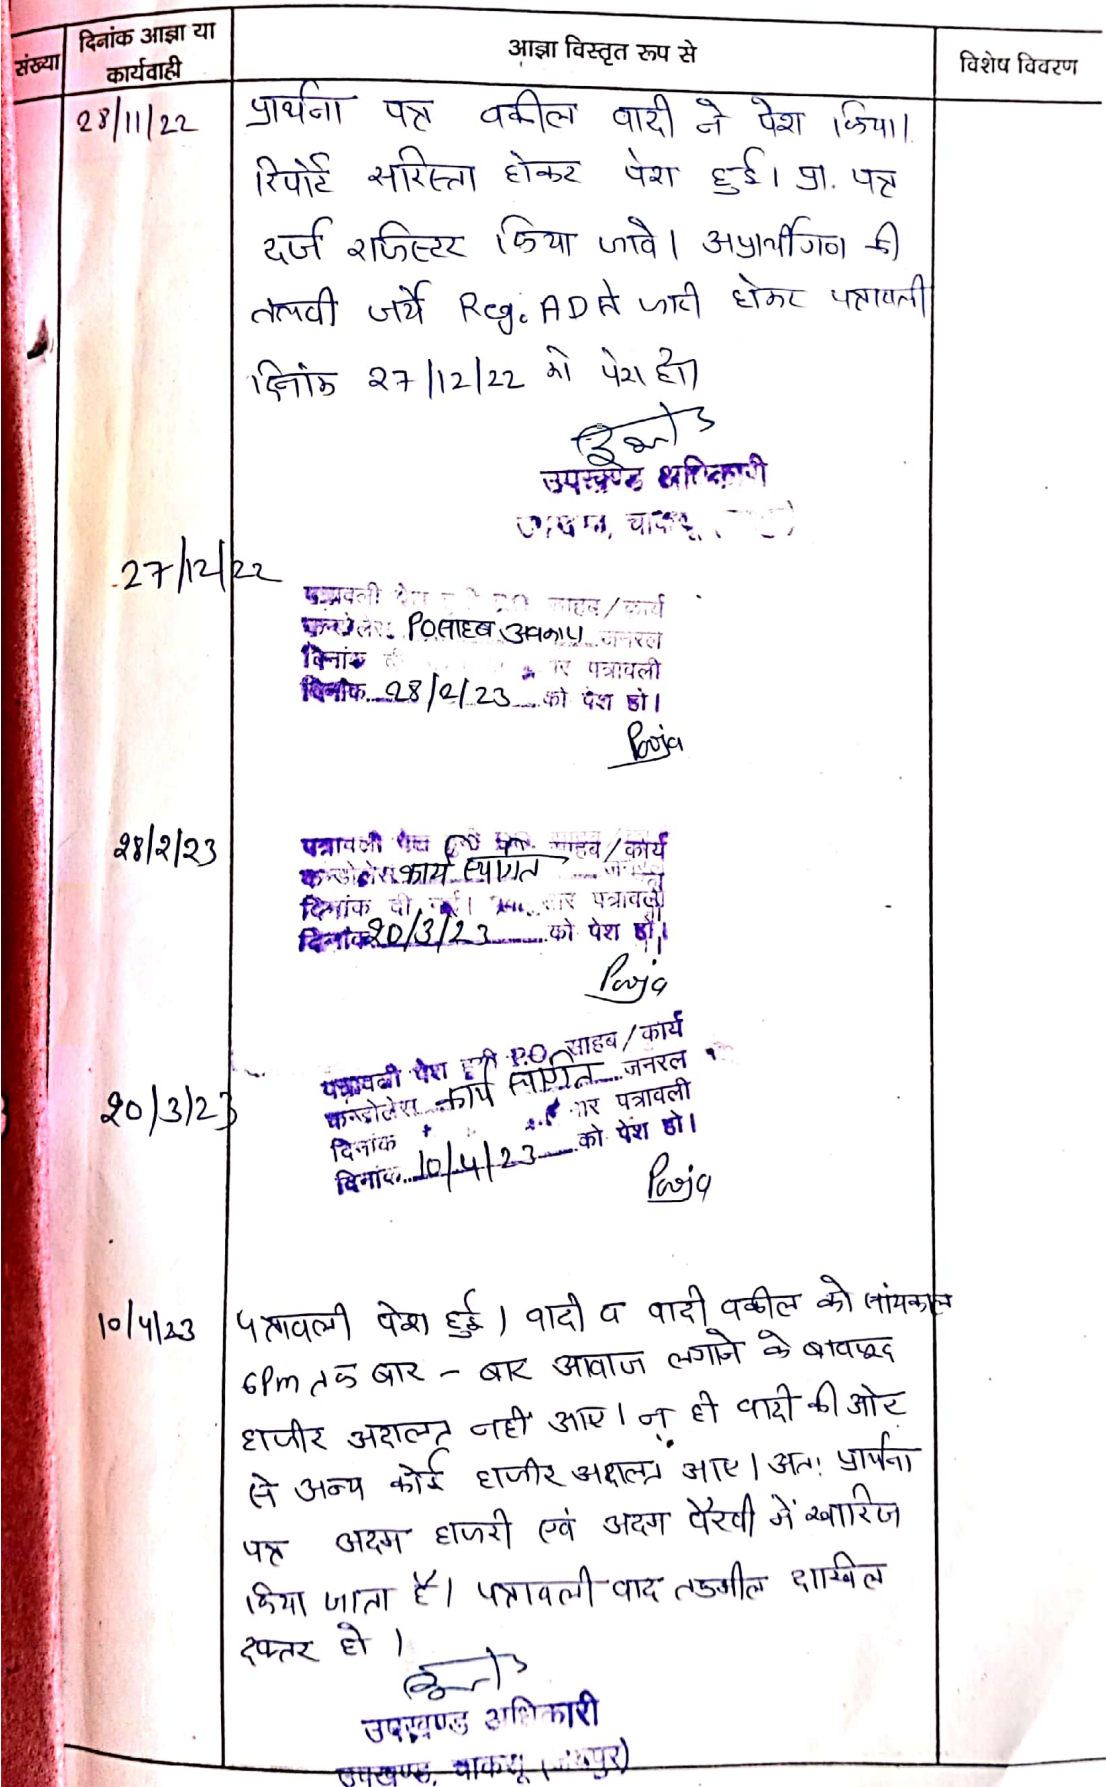 संख्या
दिनांक आज्ञा या
कार्यवाही
आज्ञा विस्तृत रूप से
विशेष विवरण
28/11/22
प्रार्थना पत्र वकील वादी ने पेश किया।
रिपोर्ट सरिस्ता होकर पेश हुई। प्रा. पत्र
दर्ज रजिस्टर किया जावे। अप्रार्थीगण की
तलवी जर्ये Reg. AD से जारी होकर पत्रावली
दिनांक 27/12/22 को पेश हो।
उपखण्ड अधिकारी
चाकसू
27/12/22
पत्रावली पेश साहब/कार्य
कन्डोलेंस PO साहब अवकाश जनरल
दिनांक पत्रावली
दिनांक 28/2/23 को पेश हो।
Pooja
28/2/23
पत्रावली पेश साहब/कार्य
कन्डोलेंस कार्य स्थगित
दिनांक दी गई। पत्रावली
दिनांक 20/3/23 को पेश हो।
Pooja
20/3/23
पत्रावली पेश हुयी P.O. साहब/कार्य
कन्डोलेंस कार्य स्थगित जनरल
दिनांक पत्रावली
दिनांक 10/4/23 को पेश हो।
Pooja
10/4/23
पत्रावली पेश हुई। वादी व वादी वकील को सांयकाल
6Pm तक बार - बार आवाज लगाने के बावजूद
हाजीर अदालत नहीं आए। न ही वादी की ओर
से अन्य कोई हाजीर अदालत आए। अतः प्रार्थना
पत्र अदम हाजरी एवं अदम पैरवी में खारिज
किया जाता है। पत्रावली वाद तकमील दाखिल
दफ्तर हो।
उपखण्ड अधिकारी
उपखण्ड, चाकसू (जयपुर)